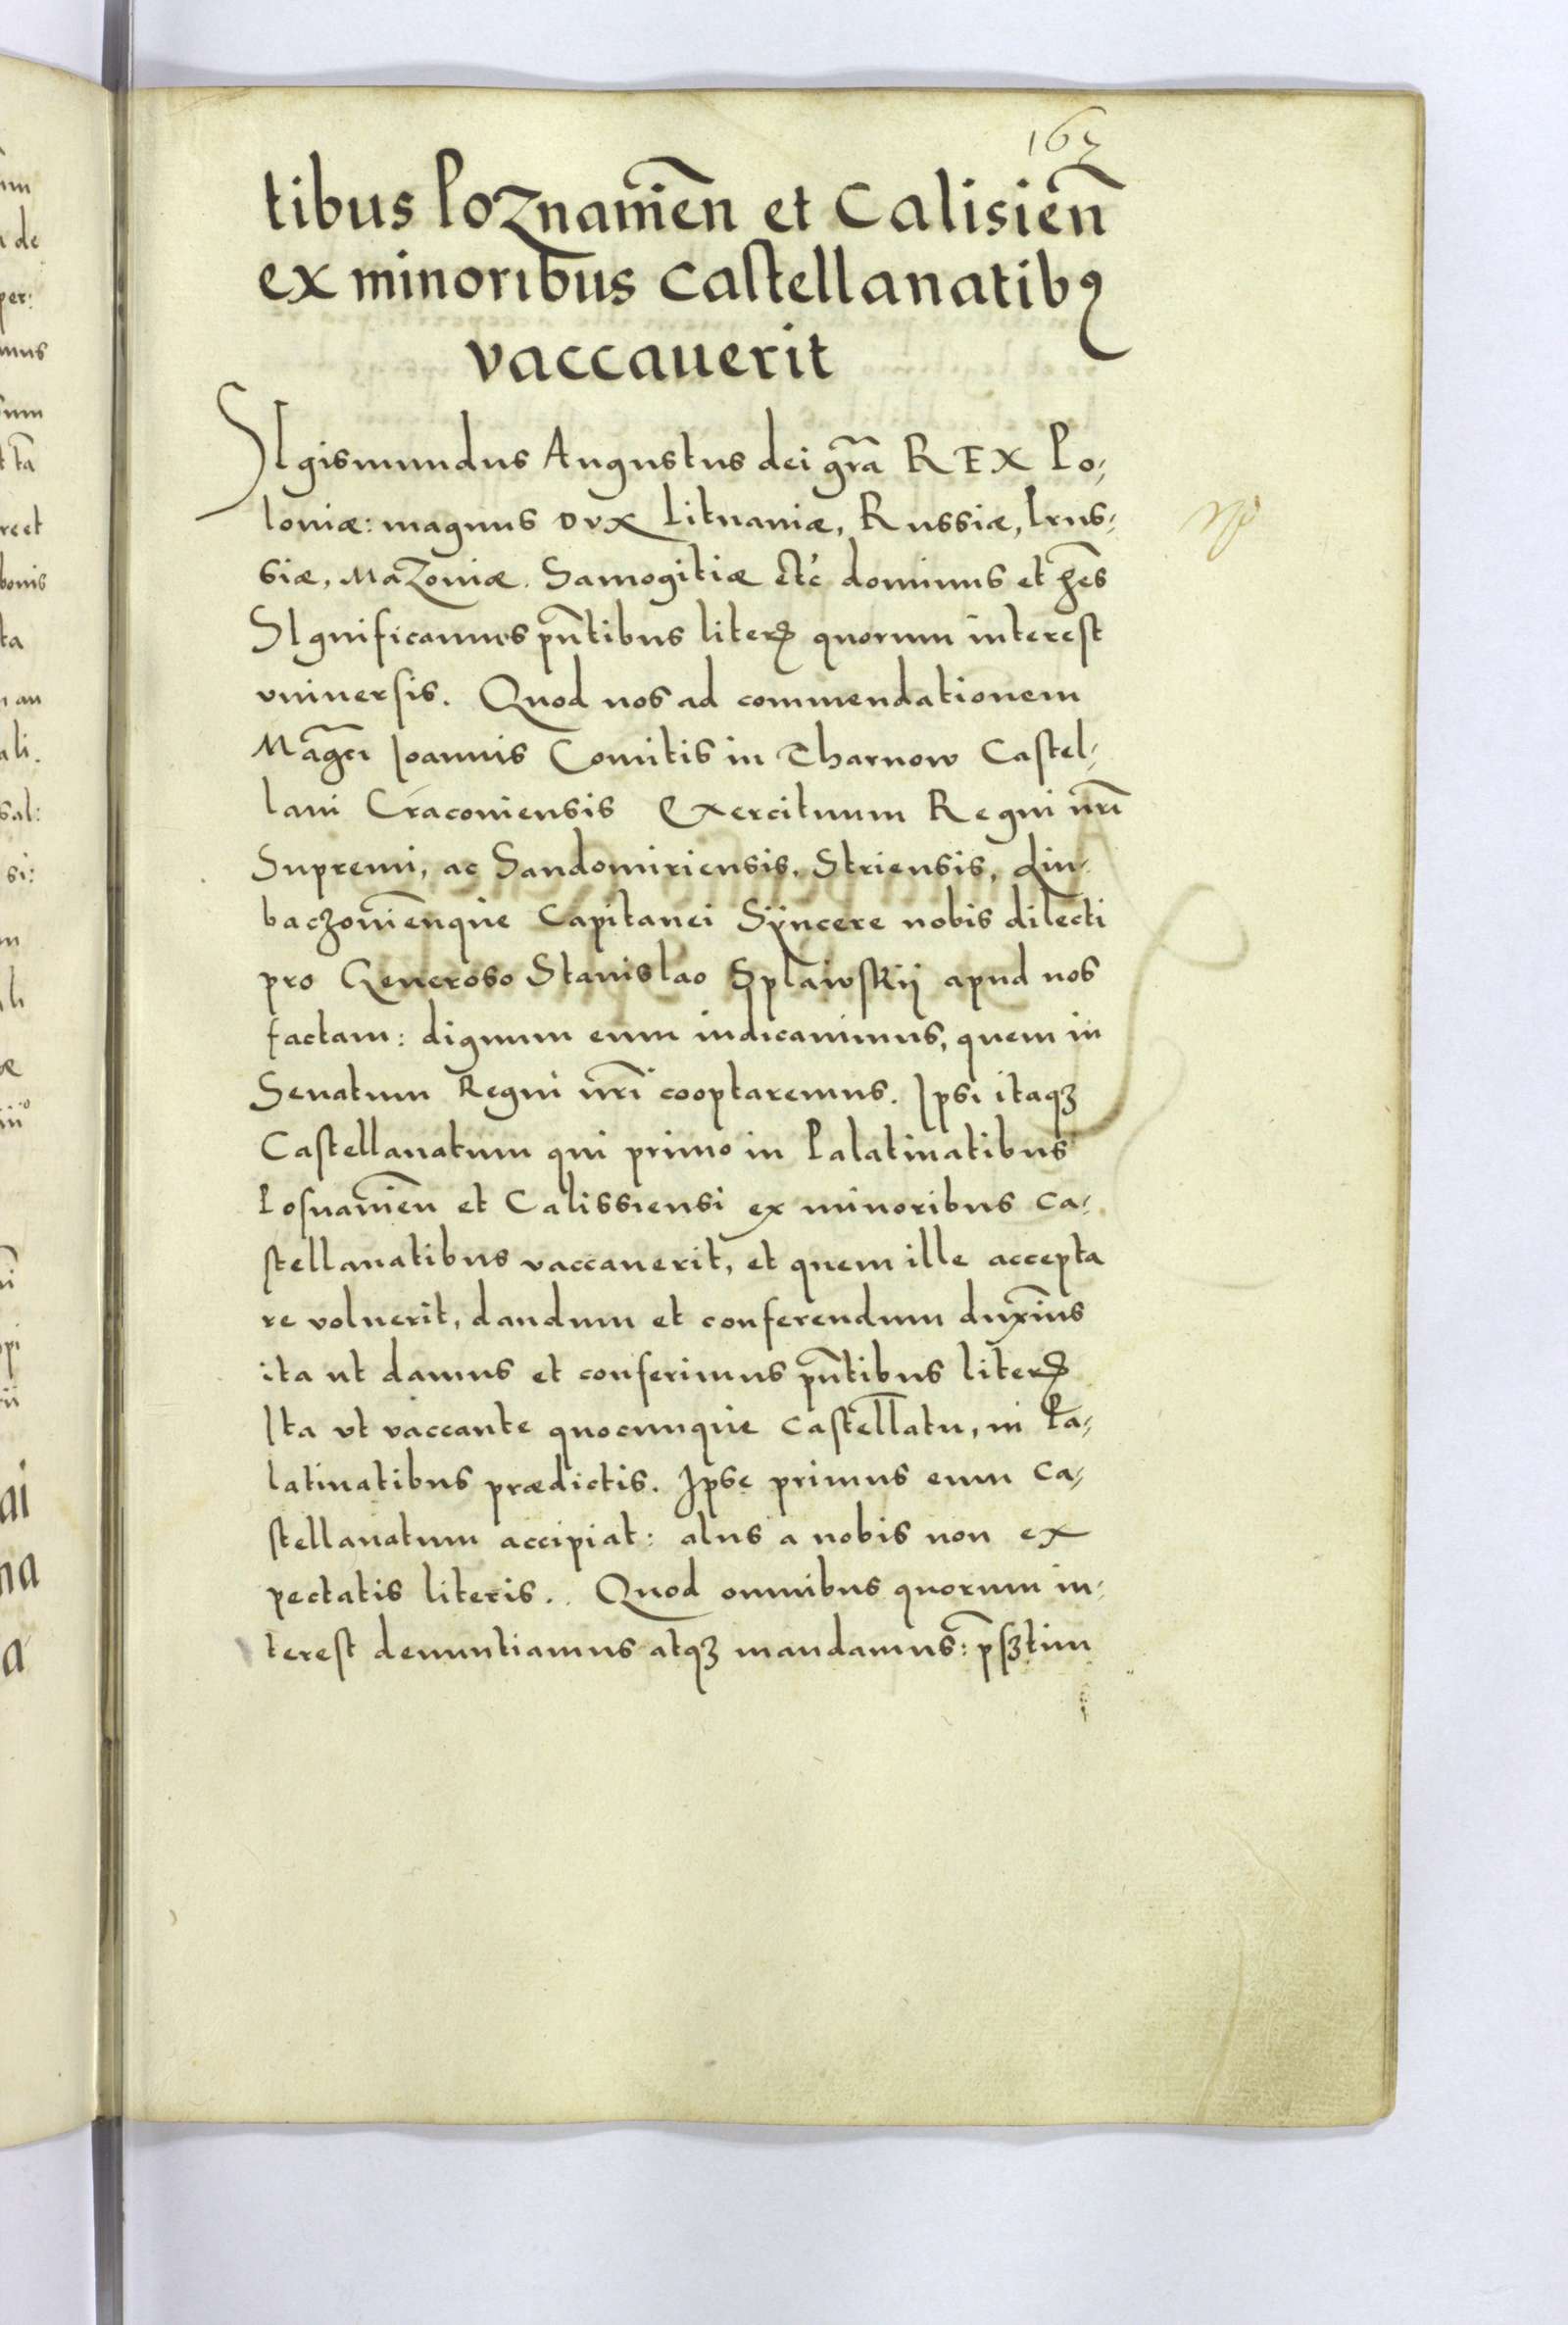 167
tibus Poznamień et Calisień
ex minoribus castellanatibꝰ
vaccauerit
SIgismundus Augustus dei gr̃a REX Po⸗
loniæ: magnus DVX Lituaniæ, Russiæ, Prus⸗
siæ, Mazouiæ. Samogitiæ etć dominus et hẽs
SIgnificamus pñtibus literꝭ quorum interest
vniuersis. Quod nos ad commendationem
Mag̃ci Ioannis Comitis in Tharnow Castel⸗
lani Cracouiensis Exercituum Regni nr̃i
Supremi, ac Sandomiriensis, Striensis, Liu⸗
baczouieñque Capitanei Sÿncere nobis dilecti
pro Generoso Stanislao Splawskÿ apud nos
factam: dignum eum iudicauimus, quem in
Senatum Regni nr̃i cooptaremus. Ipsi itaqꝫ
Castellanatum qui primo in Palatinatibus
Posnamień et Calissiensi ex minoribus ca⸗
stellanatibus vaccauerit, et quem ille accepta
re voluerit, dandum et conferendum duxim̃us
ita ut damus et conferimus pñtibus literꝭ
Ita vt vaccante quocunque castellatu, in Pa⸗
latinatibus prædictis. Ipse primus eum ca⸗
stellanatum accipiat: alijs a nobis non ex
pectatis literis.. Quod omnibus quorum in⸗
terest denuntiamus atqꝫ mandamus: p̃sꝫtim